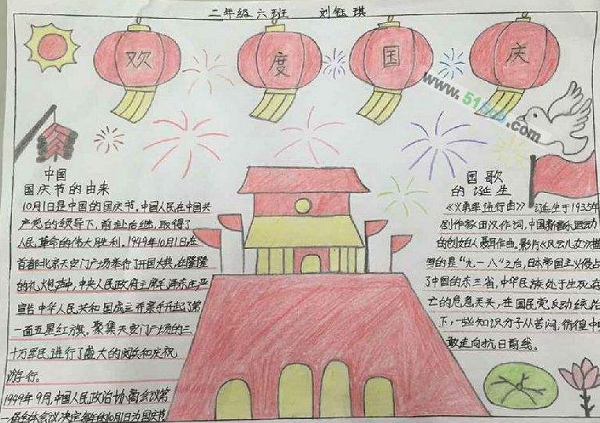 二年级六班 刘钰琪
欢度国庆
www.51
.com
中国
国庆节的由来
10月1日是中国的国庆节,中国人民在中国共
产党的领导下,前赴后继,取得了
人民革命的伟大胜利,1949年10月1日,在
首都北京天安门广场举行了开国大典,在隆隆
的礼炮声中,中央人民政府主席毛泽东庄严
宣告中华人民共和国成立并亲手升起了第
一面五星红旗,聚集天安门广场的三
十万军民进行了盛大的阅兵和庆祝
游行。
1949年9月,中国人民政治协商会议第
一届会议决定每年的10月1日为国庆节
国歌
的诞生
《义勇军进行曲》诞生于1935年
创作,田汉作词,中国新音乐运动
的创始人聂耳作曲,影片《风云儿女》
的是"九一八"之后,日本帝国主义侵占
了中国的东三省,中华民族处于生死存
亡的危急关头,在国民党反动统治
下,一些知识分子从苦闷,彷徨中
敢走向抗日前线。